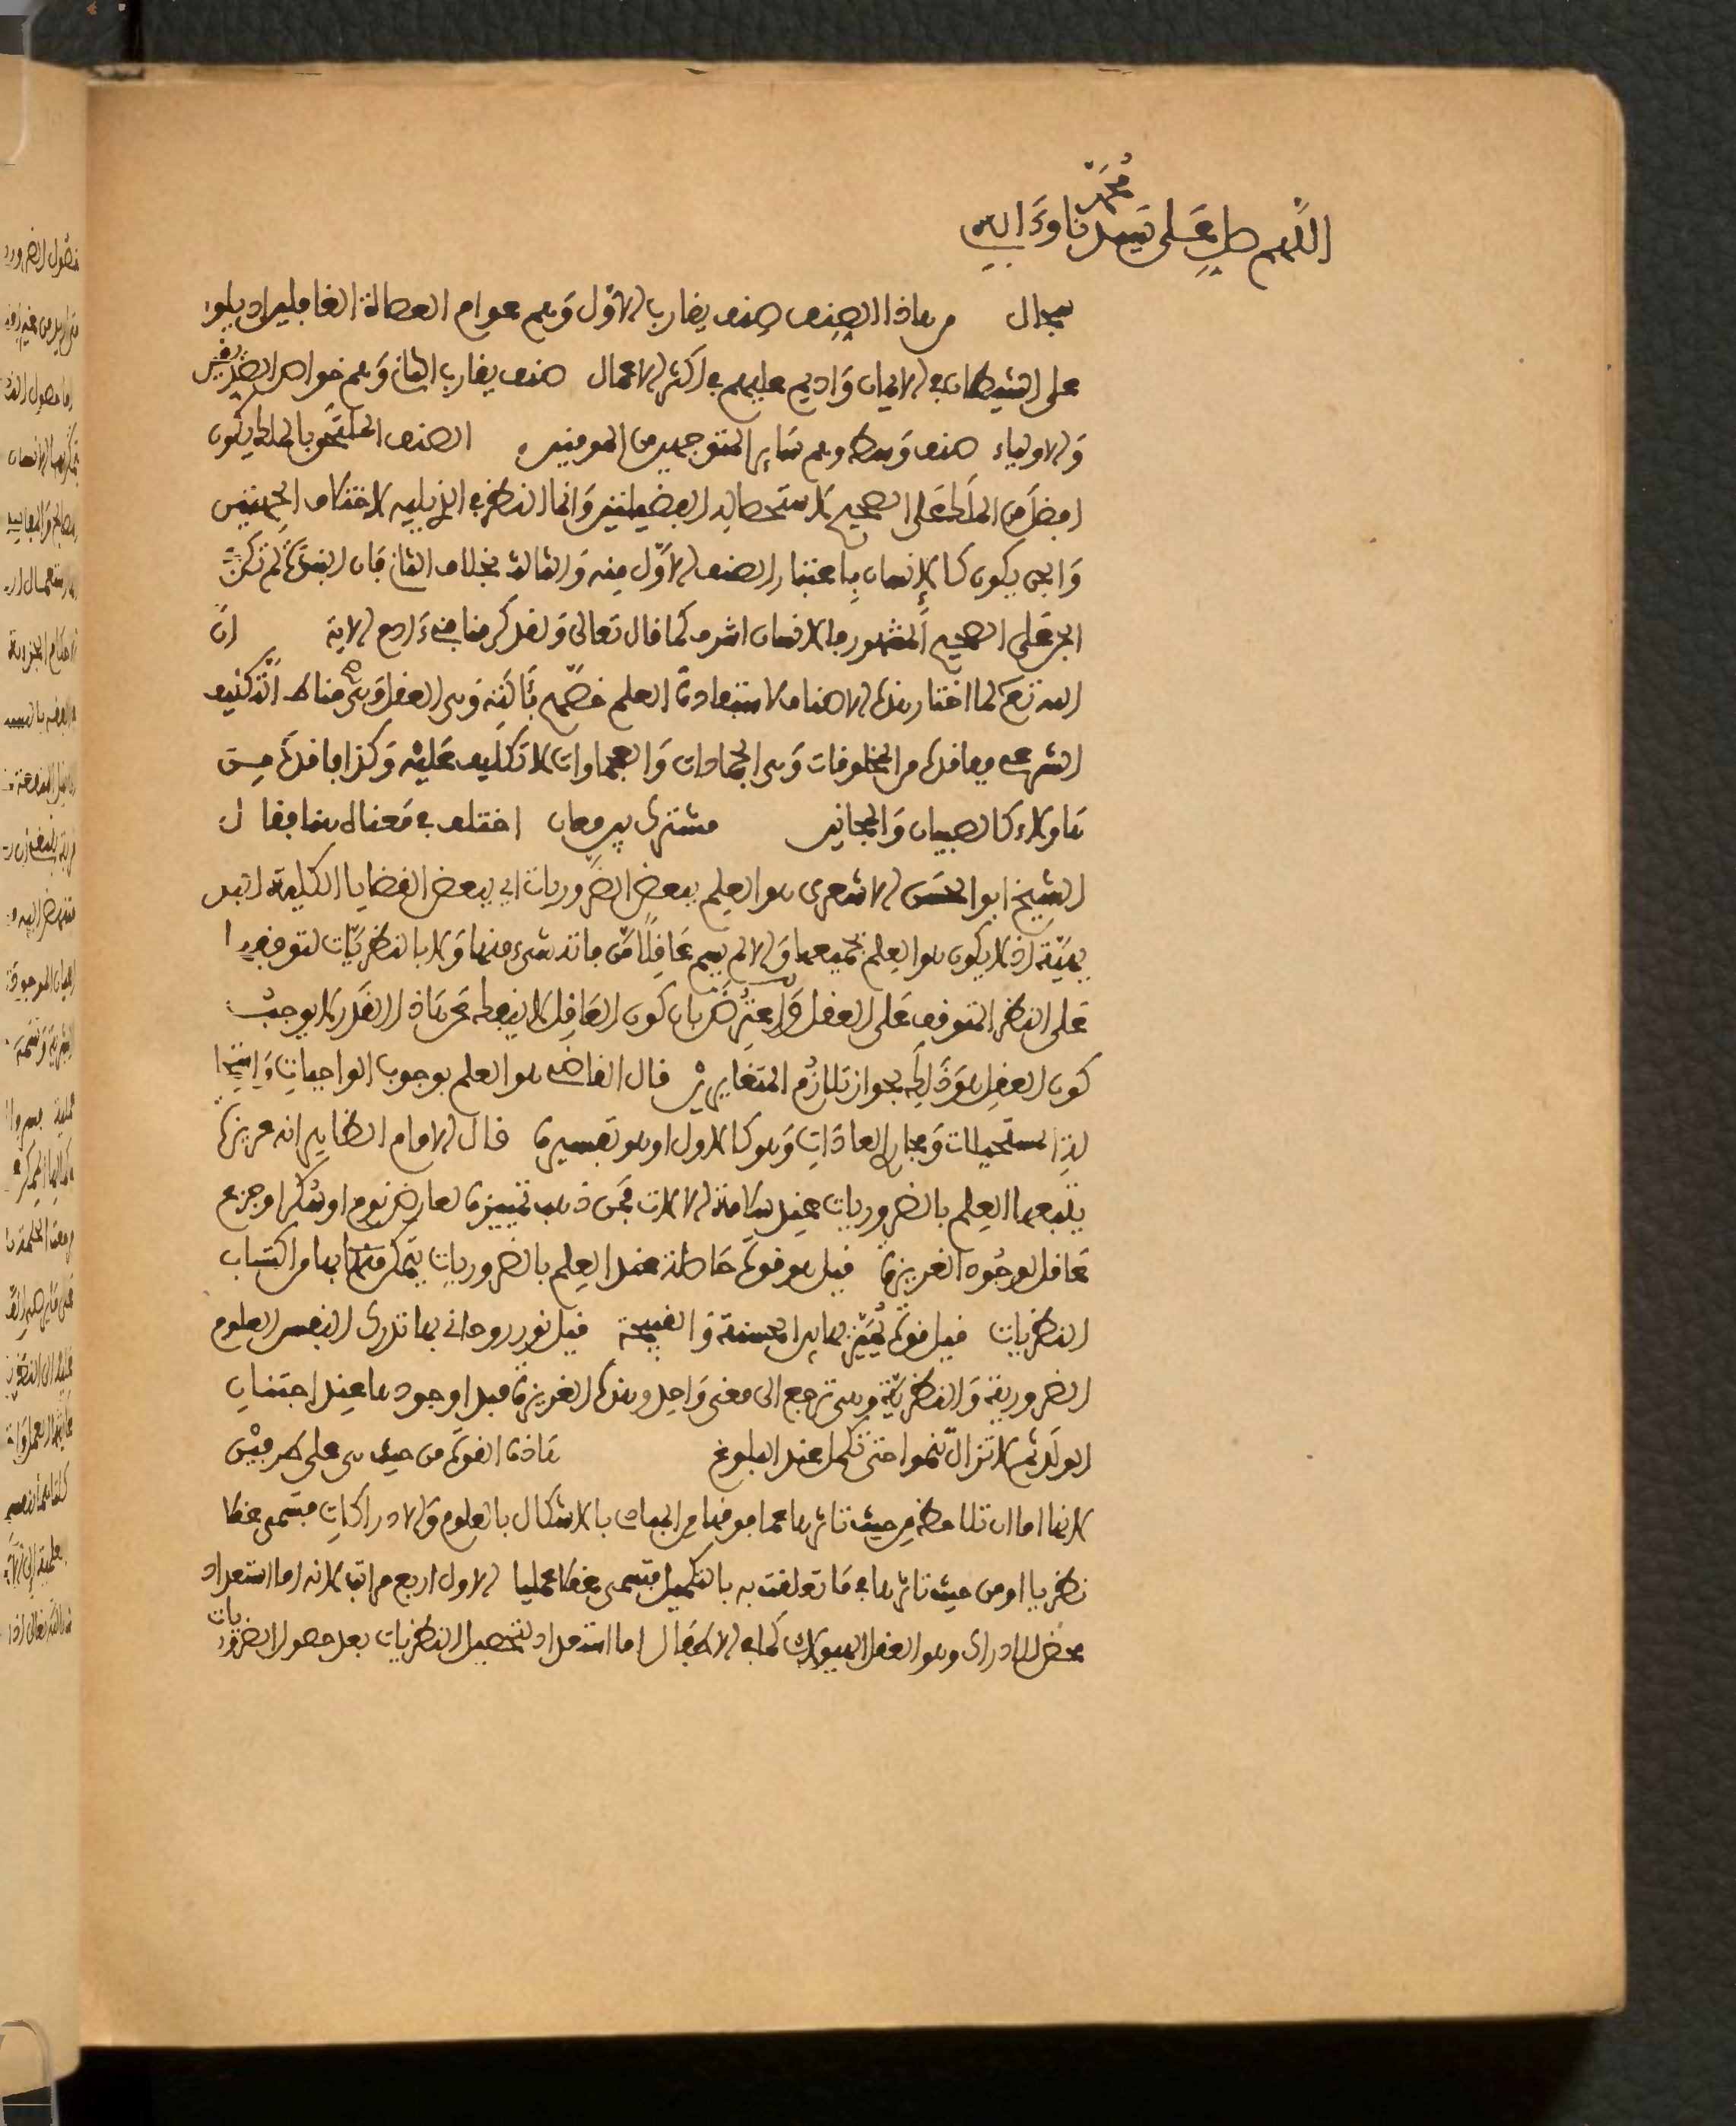 محمد
اللهم صل على سيدنا وءاله
سجال من هاذا الصنف صنف يقارب الاول وهم عوام العصاة الغافلين اذ يلوا
على الشيطان في الايمان واديم عليهم في اكثر الاعمال صنف يقارب الثاني وهم خواص الصديقين
والاولياء صنف وسط وهم سائر المتوجهين من المومنين الصنف الملتحق بالملك يكون
افضل من الملك على الصحيح لاستحصاله الفضيلتين وانما النظر في الذي يليه لاختلاف الجهتين
والجن يكون كالانسان باعتبار الصنف الاول منه والثالث بخلاف الثاني فان النبوة لم تكن في
الجن على الصحيح المشهور ما الانسان اشرف كما قال تعالى ولقد كرمنا بني ءادم الاية ان
الله تعالى لما اختار هذه الاصناف لاستفادة العلم خصهم بآلته وهي العقل وهي مناط التكليف
الشرعي فما فقده من المخلوقات وهي الجمادات والعجماوات لا تكليف عليه وكذا ما فقده من
هاولاء كالصبيان والمجانين مشترك بين معان اختلف في معناه هنا فقال
الشيخ ابو الحسن الاشعري هو العلم ببعض الضروريات اي ببعض القضايا الكلية البد
يهية اذ لا يكون هو العلم بجميعها والا لم يسم عاقلا من فاته شيء منها ولا بالنظريات لتوقفها
على النظر المتوقف على العقل واعترض بان كون العاقل لا ينفك عن هاذا القدر لا يوجب
كون العقل هو ذلك لجواز تلازم المتغايرين قال القاضي هو العلم بوجوب الواجبات واستحا
لة المستحيلات ومجاري العادات وهو كالاول او هو تفسيره قال الامام الظاهر انه غريزة
يتبعها العلم بالضروريات عند سلامة الالات فمن ذهب تمييزه لعارض نوم او سكر او جزع
عاقل لوجود الغريزة قيل هو قوة حاصلة عند العلم بالضروريات يتمكن بها من اكتساب
النظريات قيل قوة يميز بها بين الحسنة والقبيحة قيل نور روحاني بها تدرك النفس العلوم
الضرورية والنظرية وهي ترجع الى معنى واحد وهذه الغريزة مبدا وجودها عند اجتنان
الولد ثم لا تزال تنموا حتى تكمل عند البلوغ هاذه القوة من حيث هي على ضربين
لانها اما ان تلاحظ من حيث تاثرها عما فوقها من الجهات بالاشكال بالعلوم والادراكات فتسمى عقلا
نظريا او من حيث تاثيرها في ما تعلقت به بالتكميل فتسمى عقلا عمليا الاول اربع مراتب لانه اما استعداد
محض للادراك وهو العقل الهيولاني كما في الاطفال اما استعداد لتحصيل النظريات بعد حصول الضروريات